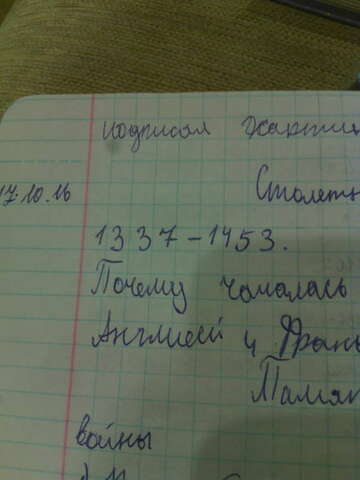 подписал хартию
17.10.16
Столетн
1337-1453.
Почему началась
Англией и Фран
Памят
войны